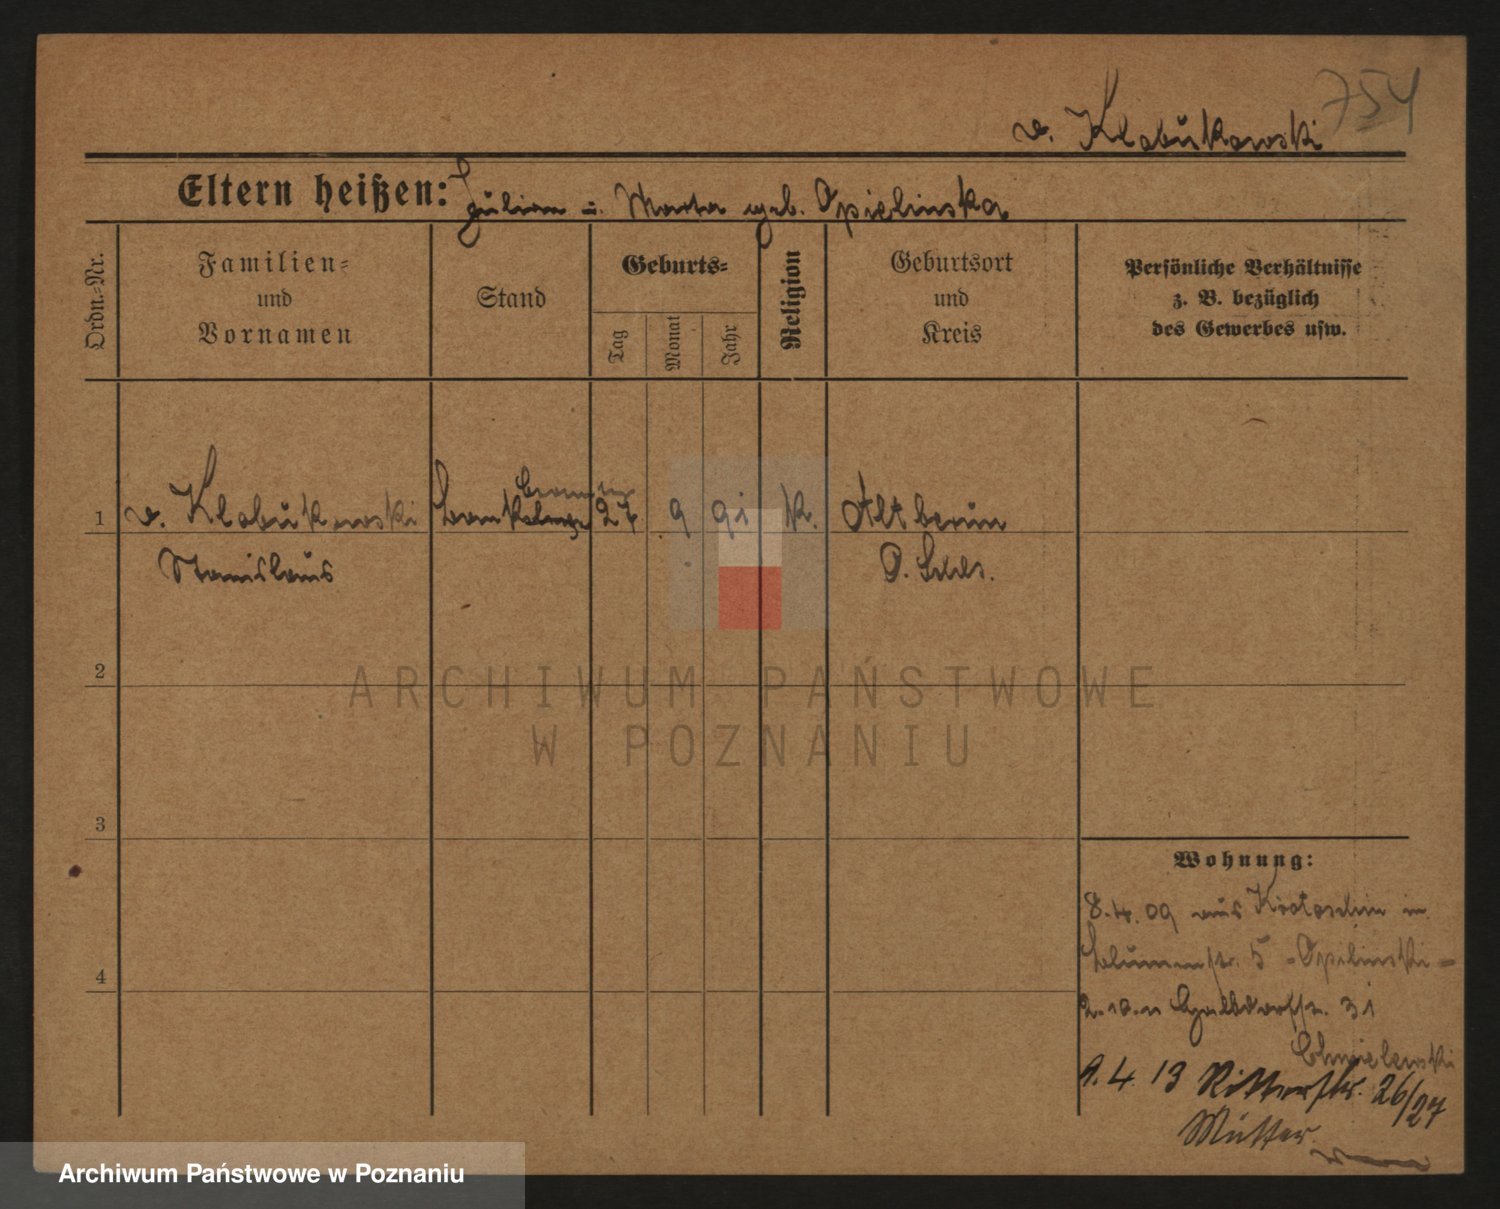 754
v. Klobukowski
Eltern heißen: Julian u. Marta geb. Opielinska
Ordn.-Nr.
Familien-
und
Vornamen
Stand
Geburts-
Tag
Monat
Jahr
Religion
Geburtsort
und
Kreis
Persönliche Verhältnisse
z. B. bezüglich
des Gewerbes usw.
1 v. Klobukowski 27 9 91 k. Altberun
Stanislaus O. Schles.
2
3
4
Wohnung:
8.4.09 aus Krotoschin in
Blumenstr. 5 - Opielinski -
2.10.11 Halbdorfstr. 31
Chmielewski
1.4.13 Ritterstr. 26/27
Mutter
ARCHIWUM PAŃSTWOWE
W POZNANIU
Archiwum Państwowe w Poznaniu